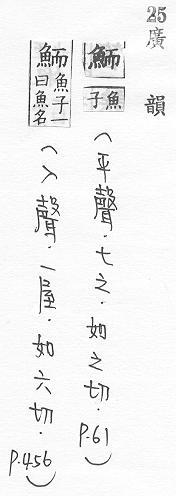 25 廣韻
鮞 魚子 (平聲.七之.如之切.P.61)
鮞 魚子一曰魚名 (入聲.一屋.如六切.P.456)